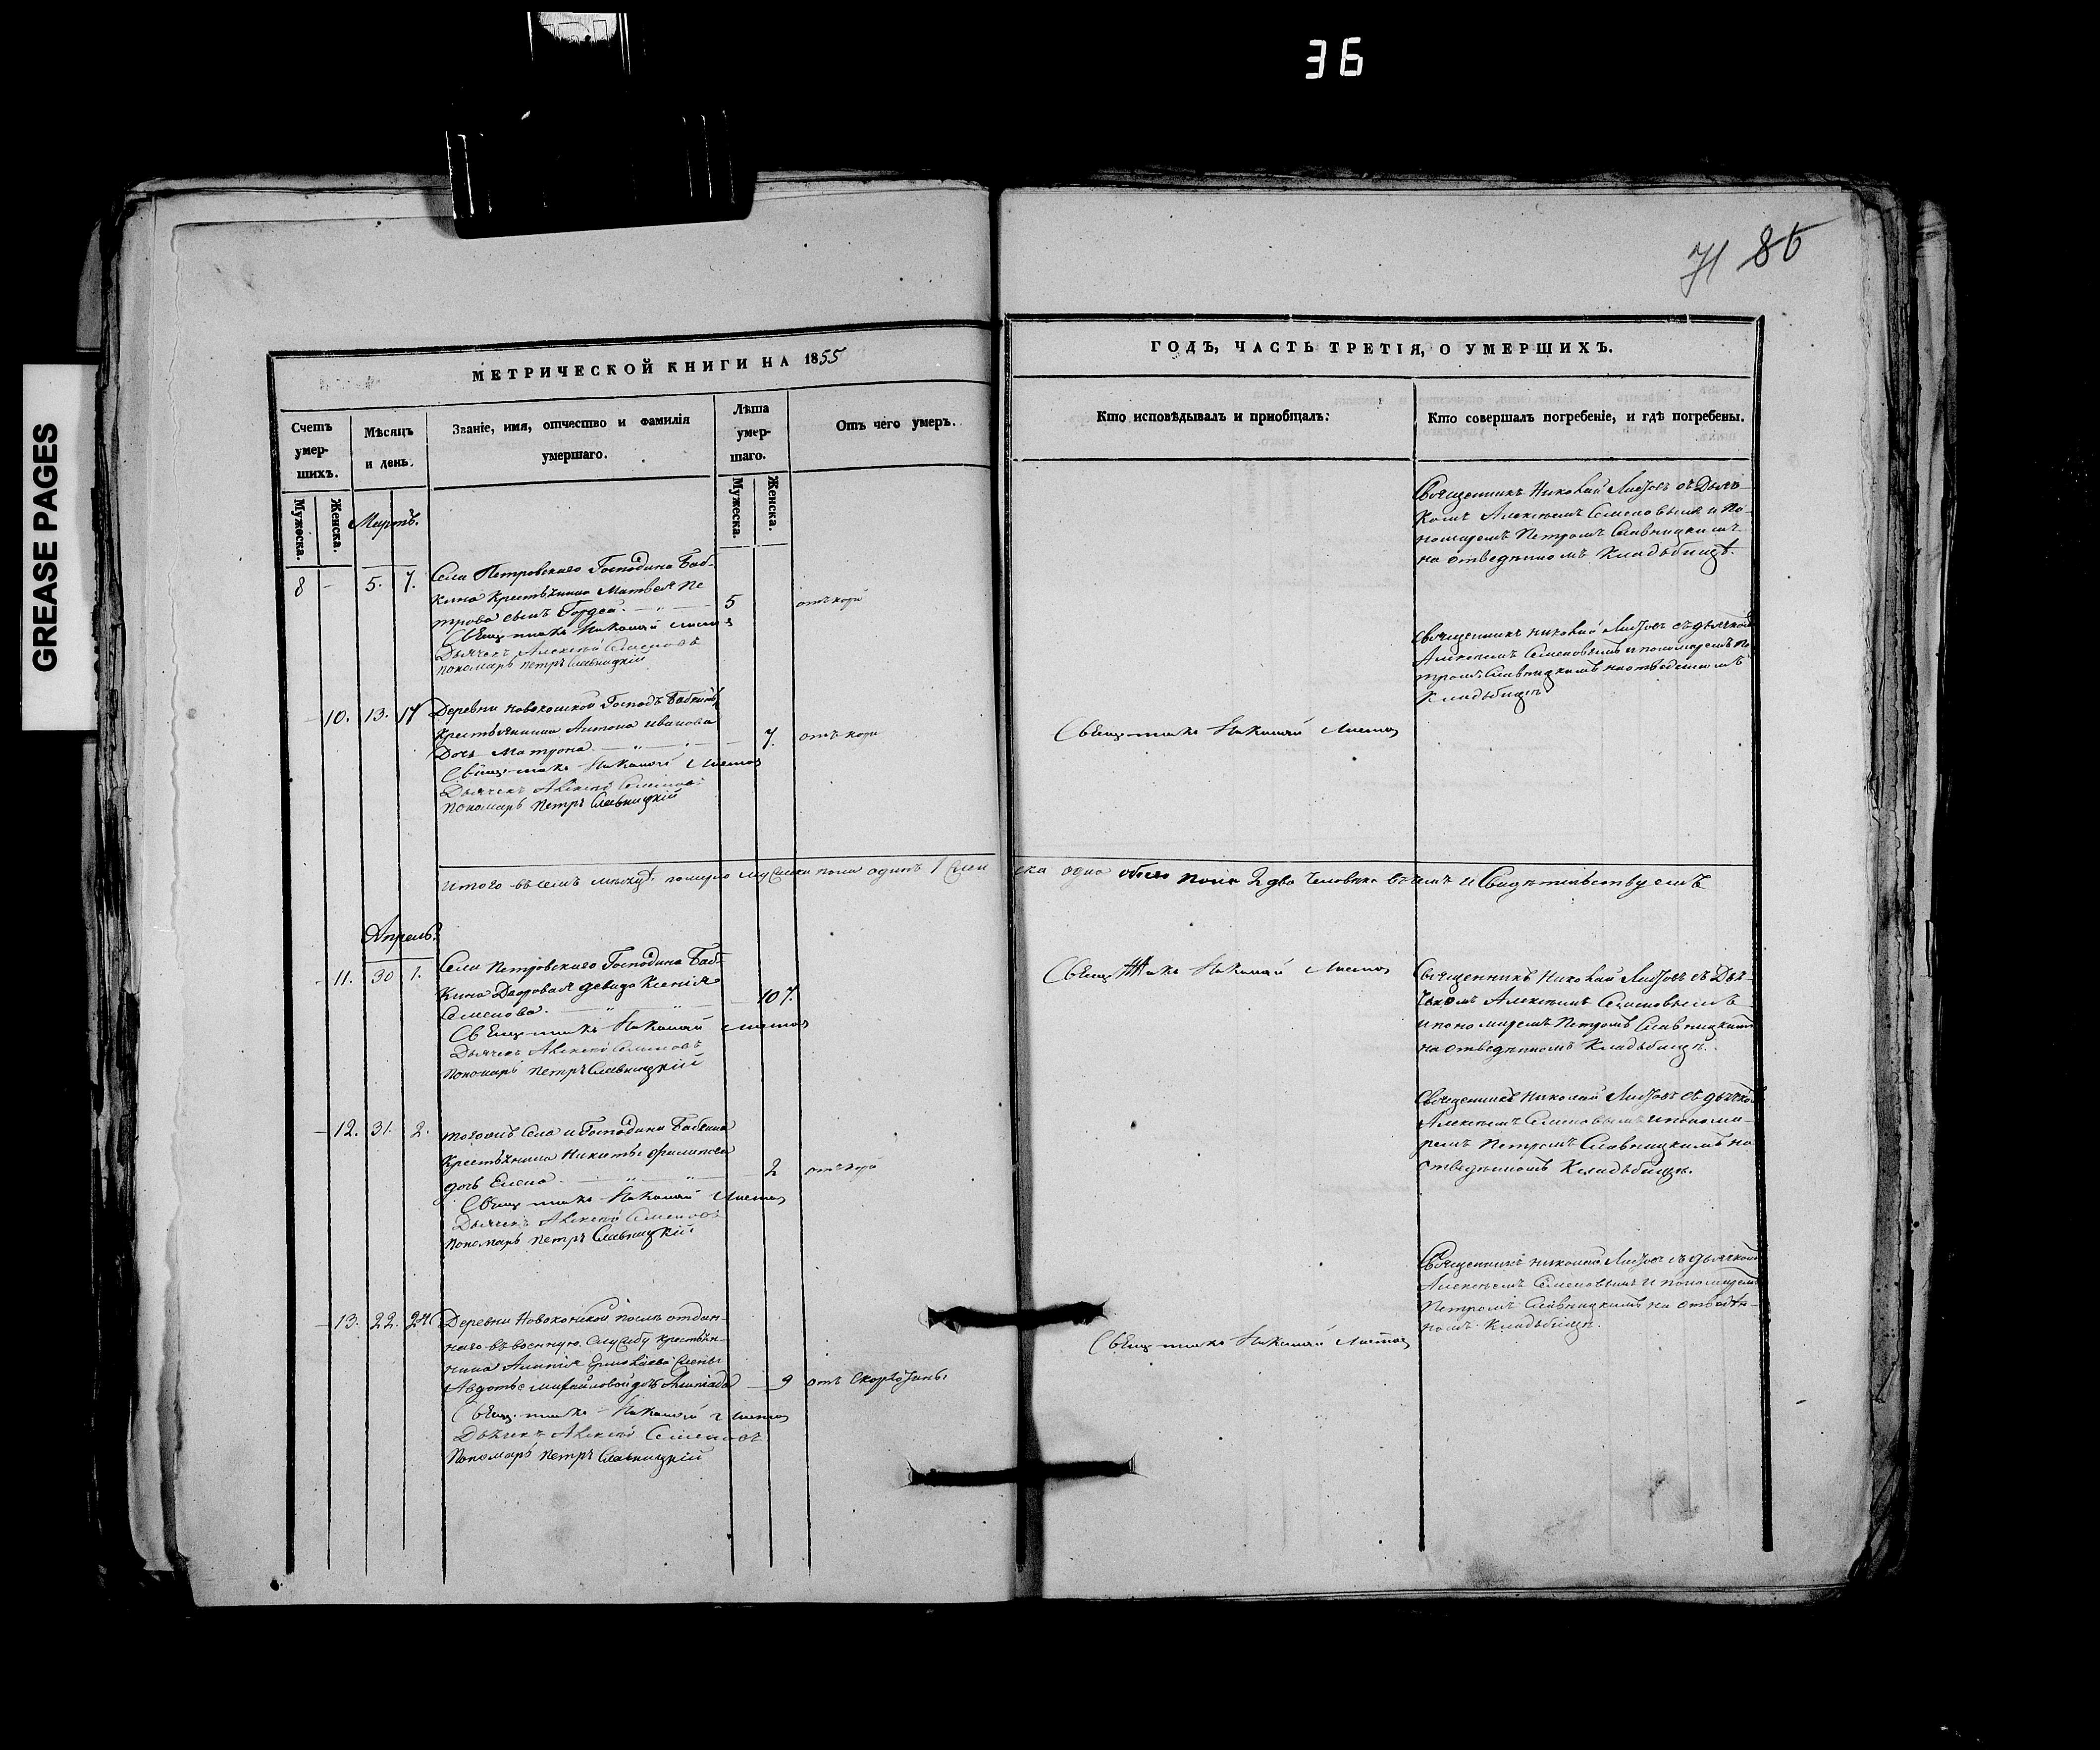 36
GREASE PAGES
71 86
МЕТРИЧЕСКОЙ КНИГИ НА 1855
Счетъ умер-шихъ.
Мужеска.
Женска.
Мѣсяцъ и день.
Званіе, имя, отчество и фамилія умершаго.
Лѣта умер-шаго.
Мужеска.
Женска.
Отъ чего умеръ.
Мартъ.
8 - 5. 7. Села Петровскаго Господина Баб-
кина Крестьянина Матвея Пе
трова сынъ Гордей 5 отъ кори
Свящ-никъ Николай Листов
Дьячекъ Алексѣй Семеновъ
пономарь петръ Славницкій
- 10. 13. Деревни
крестьянина Антона иванова
Дочь Матрона 7. отъ кори
Свящ-никъ Николай Листов
Дьячекъ Алексѣй Семеновъ
Пономарь Петръ Славницкій
Итого въ семъ мѣсяцѣ померло мужеска пола одинъ 1 жен
Апрель.
- 11. 30 1. Села Петровскаго Господина Баб-
кина Дворовая девица Ксения
Семенова 107.
Свящ-никъ Николай Листов
Дьячекъ Алексѣй Семеновъ
Пономарь Петръ Славницкій
- 12. 31. 2. тогожъ Села и Господина Бабкина
Крестьянина Никиты филипова
дочь Елена 2 отъ кори
Свящ-никъ Николай Листов
Дьячекъ Алексѣй Семеновъ
Пономарь Петръ Славницкій
- 13. 22. 24 Деревни отдан-
наго въ военную службу крестьян-
нина жены
Авдотьи михайловой дочь 9
Свящ-никъ Николай Листов
Дьячекъ Алексѣй Семеновъ
Пономарь Петръ Славницкій
ГОДЪ, ЧАСТЬ ТРЕТІЯ, О УМЕРШИХЪ.
Кто исповѣдывалъ и пріобщалъ:
Кто совершалъ погребеніе, и гдѣ погребены.
Священникъ Николай Листовъ съ Дьяч-
комъ Алексѣемъ Семеновымъ и По-
номаремъ Петромъ Славницкимъ
на отведенномъ Кладбищѣ.
Священникъ николай Листовъ съ дьячкомъ
Алексѣемъ Семеновымъ и пономаремъ Пе
тромъ Славницкимъ на отведенномъ
Кладбищѣ
Свящ-никъ Николай Листов
ска одна обоего пола 2 два человека въ чемъ и Свидѣтельствуемъ
Свящ-никъ Николай Листов
Священникъ Николай Листовъ съ Дья-
чкомъ Алексѣемъ Семеновымъ
и пономаремъ Петромъ Славницкимъ
на отведенномъ Кладбищѣ.
Священникъ Николай Листовъ съ дьячкомъ
Алексѣемъ Семеновымъ и понома-
ремъ Петромъ Славницкимъ на
отведенномъ Кладбищѣ.
Священникъ николай Листовъ съ дьячкомъ
Алексѣемъ Семеновымъ и пономаремъ
Петромъ Славницкимъ на отведен-
номъ Кладбищѣ.
Свящ-никъ Николай Листов